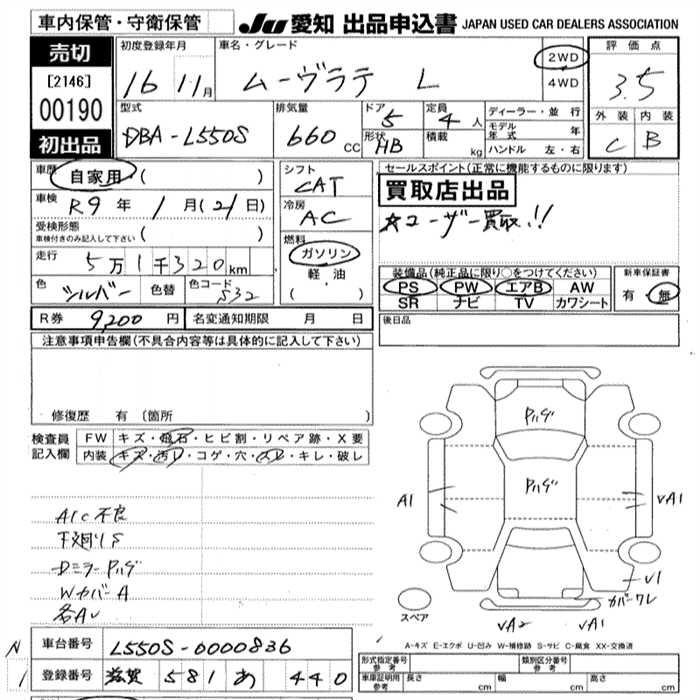 車内保管・守衛保管
JU 愛知 出品申込書 JAPAN USED CAR DEALERS ASSOCIATION
売切
[2146]
00190
初出品
初度登録年月
16 11月
車名・グレード
ムーヴラテ L
2WD
4WD
評価点
3.5
外装 内装
C B
型式
DBA-L550S
排気量
660 CC
ドア
5
形状
HB
定員
4 人
積載
kg
ディーラー・並行
モデル年式 年
ハンドル 左・右
車歴
自家用 ( )
車検
R9年 1月(21日)
受検形態
車検付きのみ記入して下さい ( )
走行
5万1千320km
色
シルバー
色替
色コード
S32
シフト
CAT
冷房
AC
燃料
ガソリン
軽・油
( ・ )
セールスポイント(正常に機能するものに限ります)
買取店出品
☆ユーザー買取!!
装備品(純正品に限り○をつけてください)
PS PW エアB AW
SR ナビ TV カワシート
新車保証書
有・無
R券 9,200 円
名変通知期限 月 日
後日品
注意事項申告欄(不具合内容等は具体的に記入して下さい)
修復歴 有 (箇所 )
検査員記入欄
FW キズ・飛石・ヒビ割・リペア跡・X要
内装 キズ・汚レ・コゲ・穴・スレ・キレ・破レ
A/C不良
下廻りS
DミラーPハゲ
WカバーA
各AU
Pハゲ
Pハゲ
A1
√A1
√1
カバーワレ
√A2
√A1
スペア
A-キズ E-エクボ U-凹み W-補修跡 S-サビ C-腐食 XX-交換済
N
1
車台番号
L550S-0000836
登録番号
滋賀 581 あ 440
形式指定番号
参考
類別区分番号
参考
車庫証明用
参考
長さ cm
幅 cm
高さ cm